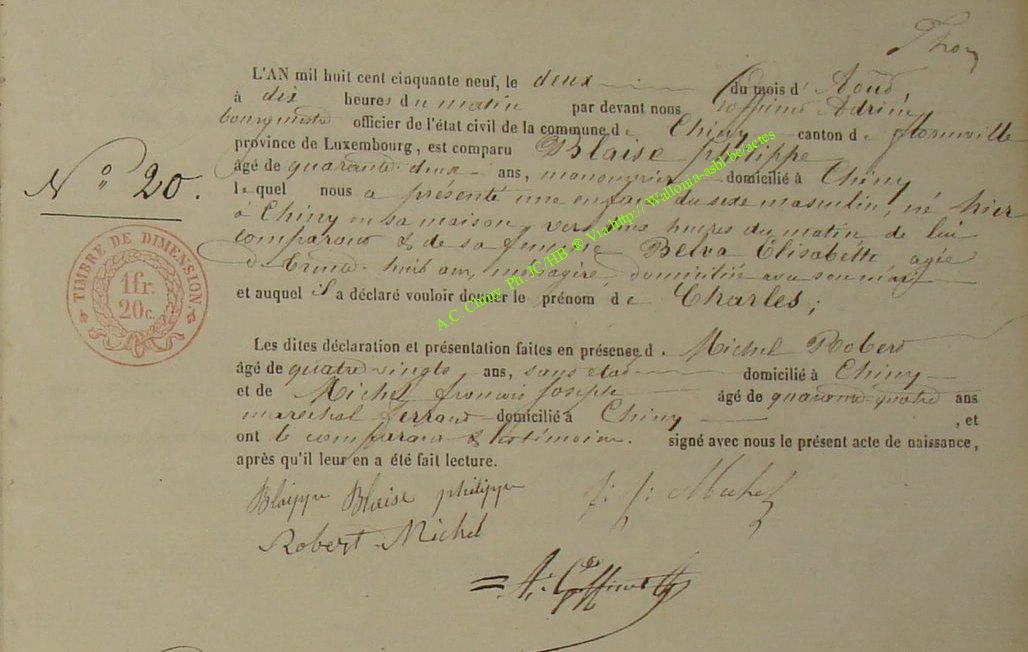 L'AN mil huit cent cinquante neuf, le deux du mois d' Août
à dix heures du matin par devant nous Adrien,
bourgmestre officier de l'état civil de la commune de Chiny canton de florenville
province de Luxembourg, est comparu Blaise philippe
âgé de quarante deux ans, manouvrier domicilié à Chiny
lequel nous a présenté une enfant du sexe masculin, né hier
à Chiny en sa maison, vers heures du matin de lui
comparant & de sa femme Belva Élisabeth agée
de trente-huit ans, menagère, domiciliée avec son mari
et auquel il a déclaré vouloir donner le prénom de Charles;
Les dites déclaration et présentation faites en présence d. Michel Robert
âgé de quatre vingts ans, sans etat domicilié à Chiny
et de Michel françois joseph âgé de quarante quatre ans
marechal ferrant domicilié à Chiny , et
ont le comparant & les témoins. signé avec nous le présent acte de naissance,
après qu'il leur en a été fait lecture.
N° 20.
TIMBRE DE DIMENSION
1fr.
20c.
Blaise philippe
f: j: Michel
Robert Michel
A.C. Chiny Ph. JC/HB ® Via http://Wallonia-asbl.be/actes